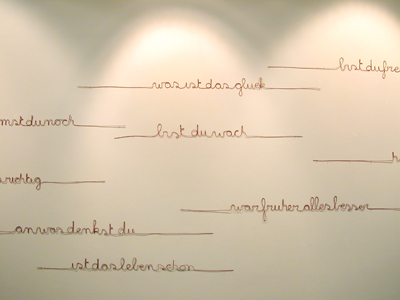 bist du fre
was ist das glück
mst du noch
bist du wach
richtig
war früher alles besser
an was denkst du
ist das leben schön